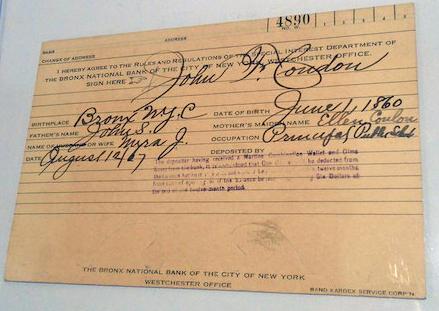 4890
NO. W.
NAME
ADDRESS
CHANGE OF ADDRESS
I HEREBY AGREE TO THE RULES AND REGULATIONS OF THE SPECIAL INTEREST DEPARTMENT OF
THE BRONX NATIONAL BANK OF THE CITY OF NEW YORK WESTCHESTER OFFICE.
SIGN HERE John F. Condon
BIRTHPLACE Bronx N.Y.C DATE OF BIRTH June 1 1860
FATHER'S NAME John S. MOTHER'S MAIDEN NAME Ellen
NAME OF HUSBAND OR WIFE Myra J. OCCUPATION Principal Public Schl
DATE August 12/27 DEPOSITED BY
The depositor having received a Wallet and Dime
be deducted from
twelve months
Six Dollars at
the end of twelve-month period.
THE BRONX NATIONAL BANK OF THE CITY OF NEW YORK
WESTCHESTER OFFICE
RAND KARDEX SERVICE CORP'N